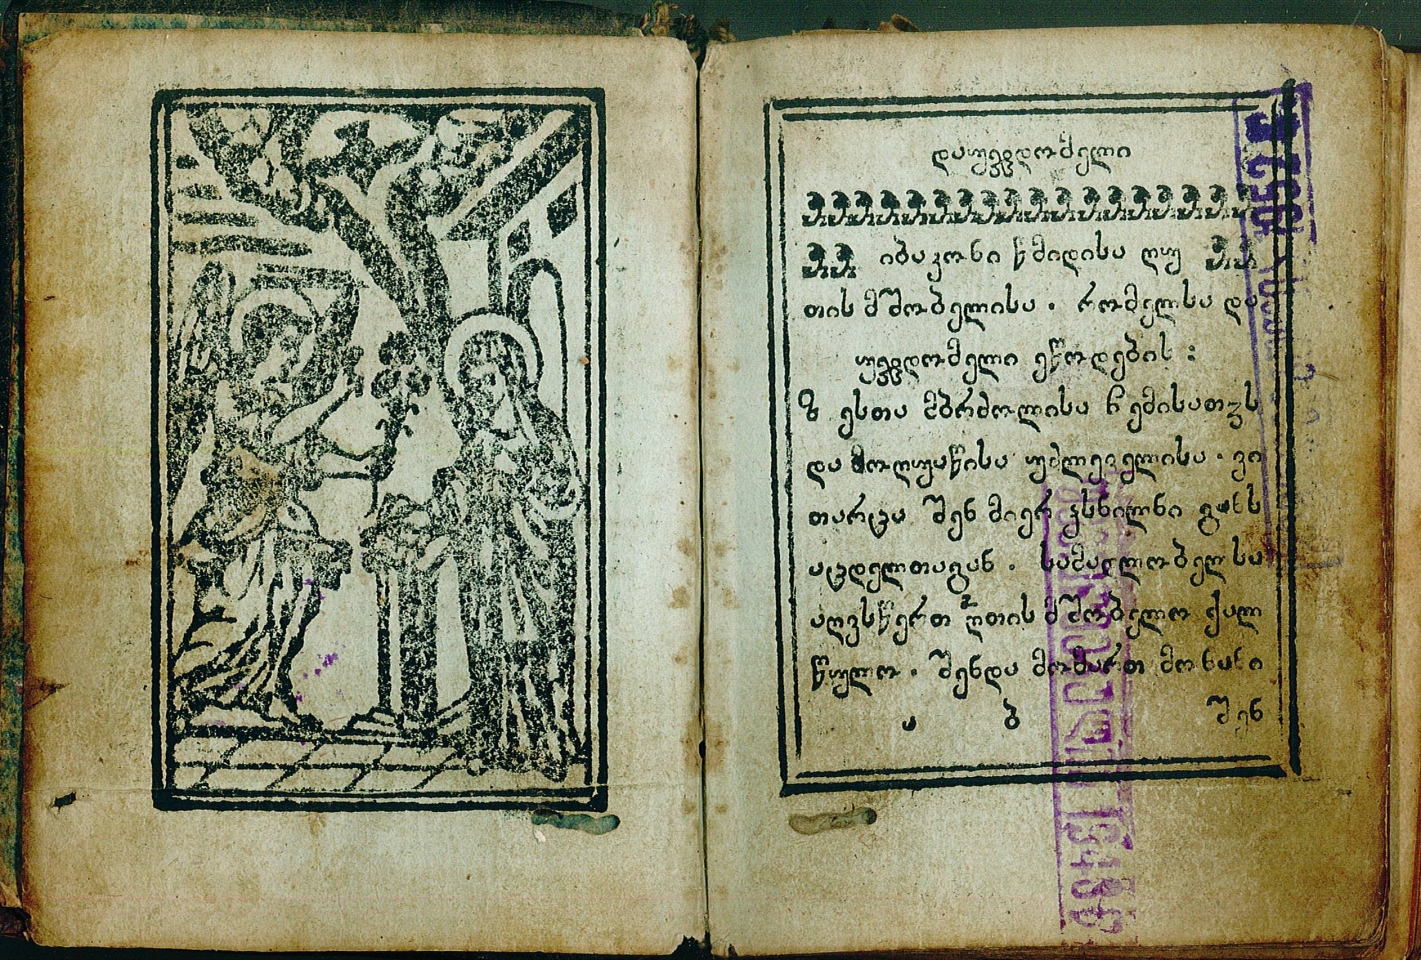 დაუჯდომელი
იბაკონი წმიდისა ღუ
თის მშობელისა . რომელსა და
უჯდომელი ეწოდების :
ზესთა მბრძოლისა ჩემისათჳს
და მოღუაწისა უძლეველისა . ვი
თარცა შენ მიერ ჴსნილნი განს
აცდელთაგან . სამადლობელსა
აღვსწერთ ღთის მშობელო ქალ
წულო . შენდა მომართ მონანი
ა ბ შენ
1952